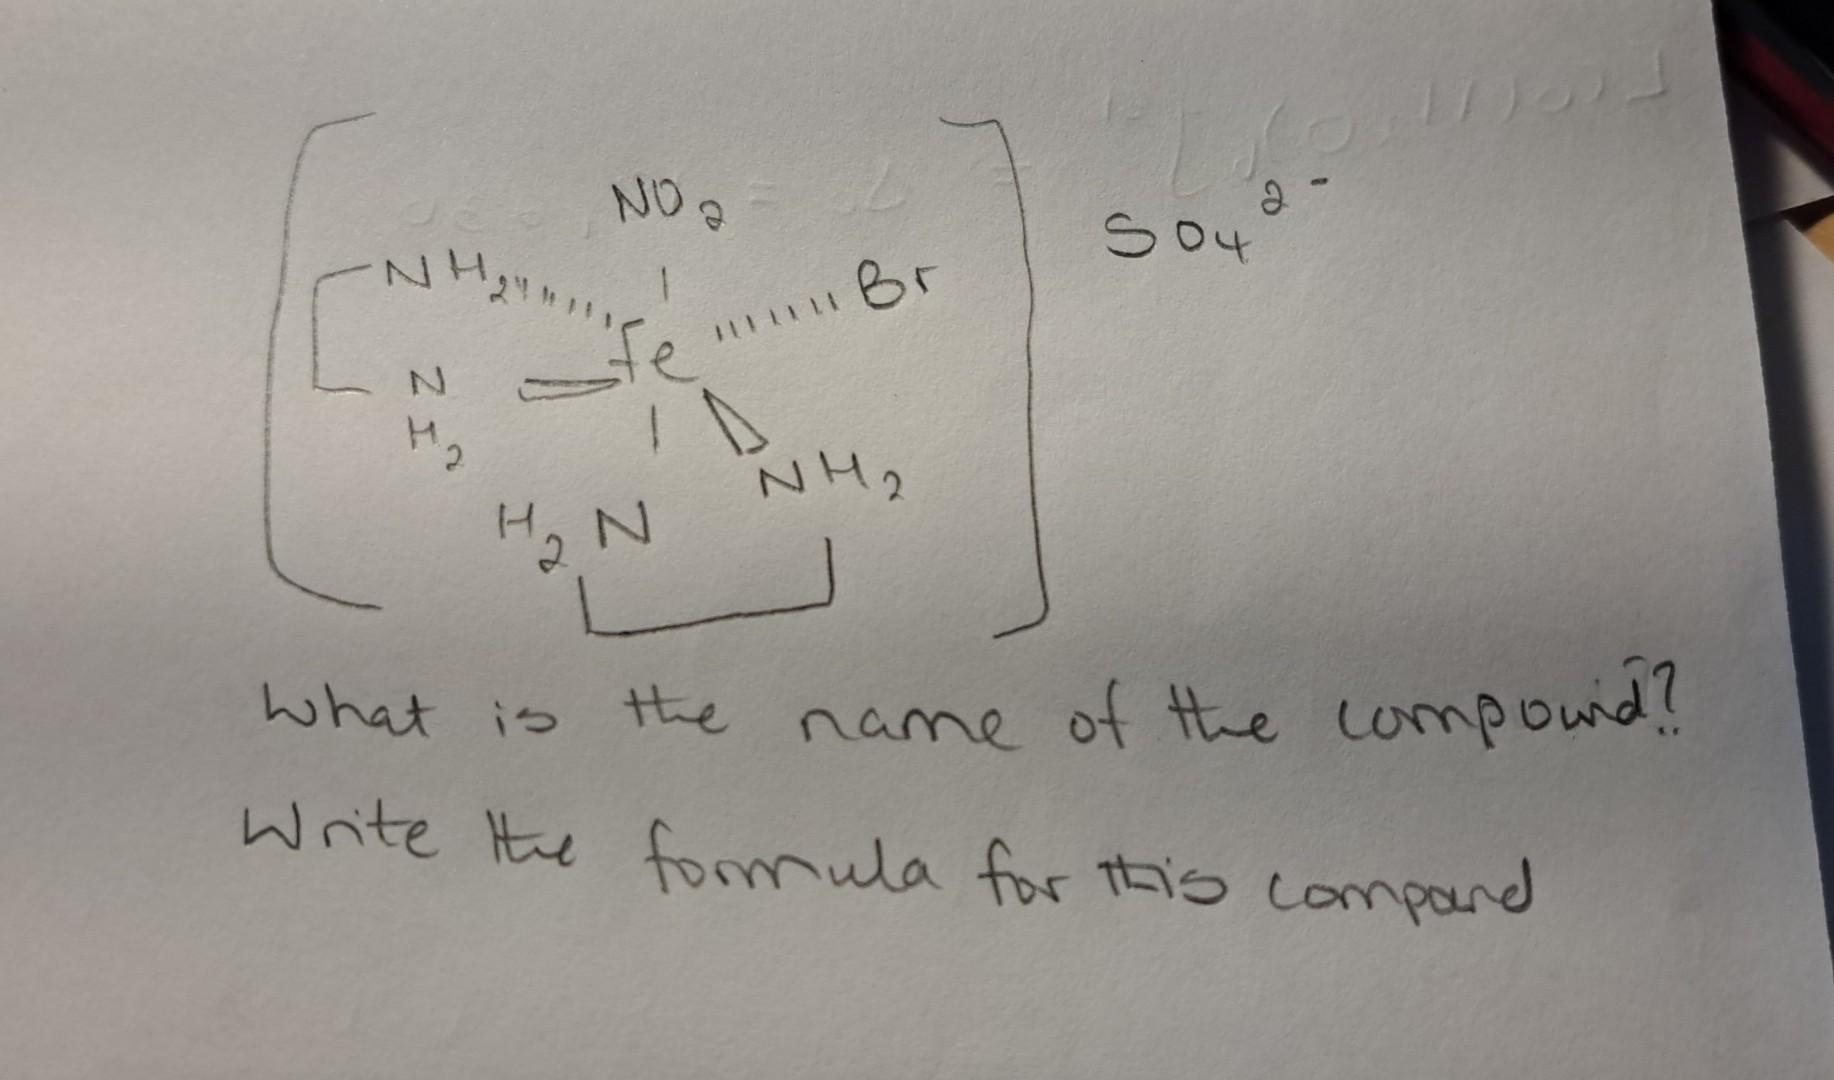 NO2
NH2 Fe Br
N
H2
H2N NH2
SO4 2-
What is the name of the compound?
Write the formula for this compound